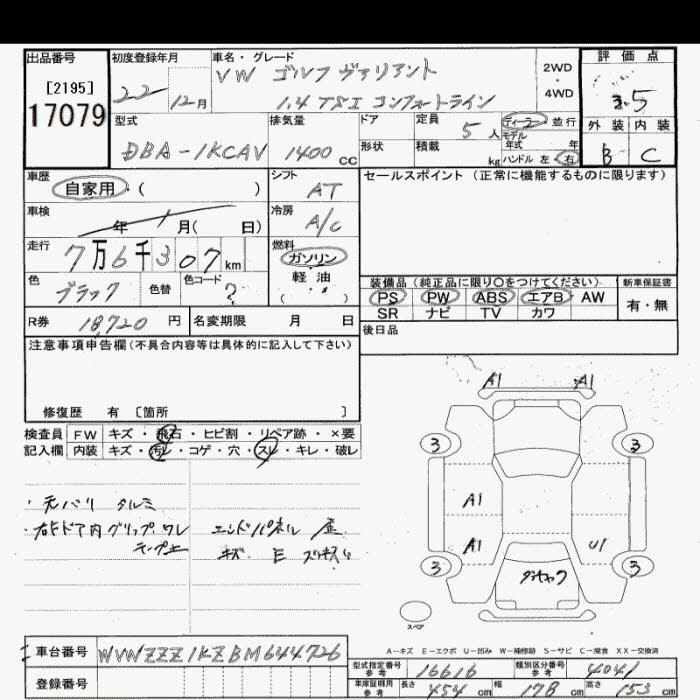 出品番号
[2195]
17079
初度登録年月
22 12月
車名・グレード
VW ゴルフ ヴァリアント
1.4 TSI コンフォートライン
2WD
・
4WD
評価点
3.5
外装 内装
B C
型式
DBA-1KCAV
排気量
1400 cc
ドア
形状
定員 5 人
積載 kg
ディーラー 並行
モデル
年式 年
ハンドル 左 右
車歴
自家用・( )
シフト
AT
セールスポイント (正常に機能するものに限ります)
車検
年 月( 日)
冷房
A/C
走行
7万6千307km
燃料
ガソリン
軽・油
( )
色
ブラック
色替
色コード
?
装備品(純正品に限り○をつけてください)
新車保証書
PS PW ABS エアB AW
SR ナビ TV カワ
有・無
R券 18720 円
名変期限 月 日
後日品
注意事項申告欄(不具合内容等は具体的に記入して下さい)
修復歴 有 〔箇所 〕
検査員 FW キズ・飛石・ヒビ割・リペア跡・×要
記入欄 内装 キズ・汚レ・コゲ・穴・スレ・キレ・破レ
・元バリ タルミ
・右Fドア内グリップ ワレ
エンドパネル
キズ E
A1 A1
3 3
A1
A1 U1
3 3
ダンキャク
スペア
A-キズ E-エクボ U-凹み W-補修跡 S-サビ C-腐食 XX-交換済
車台番号 WVWZZZ1KZBM644726
登録番号
型式指定番号
参考
16616
類別区分番号
参考
4041
車庫証明用
参考
長さ 454 cm 幅 178 cm 高さ 153 cm